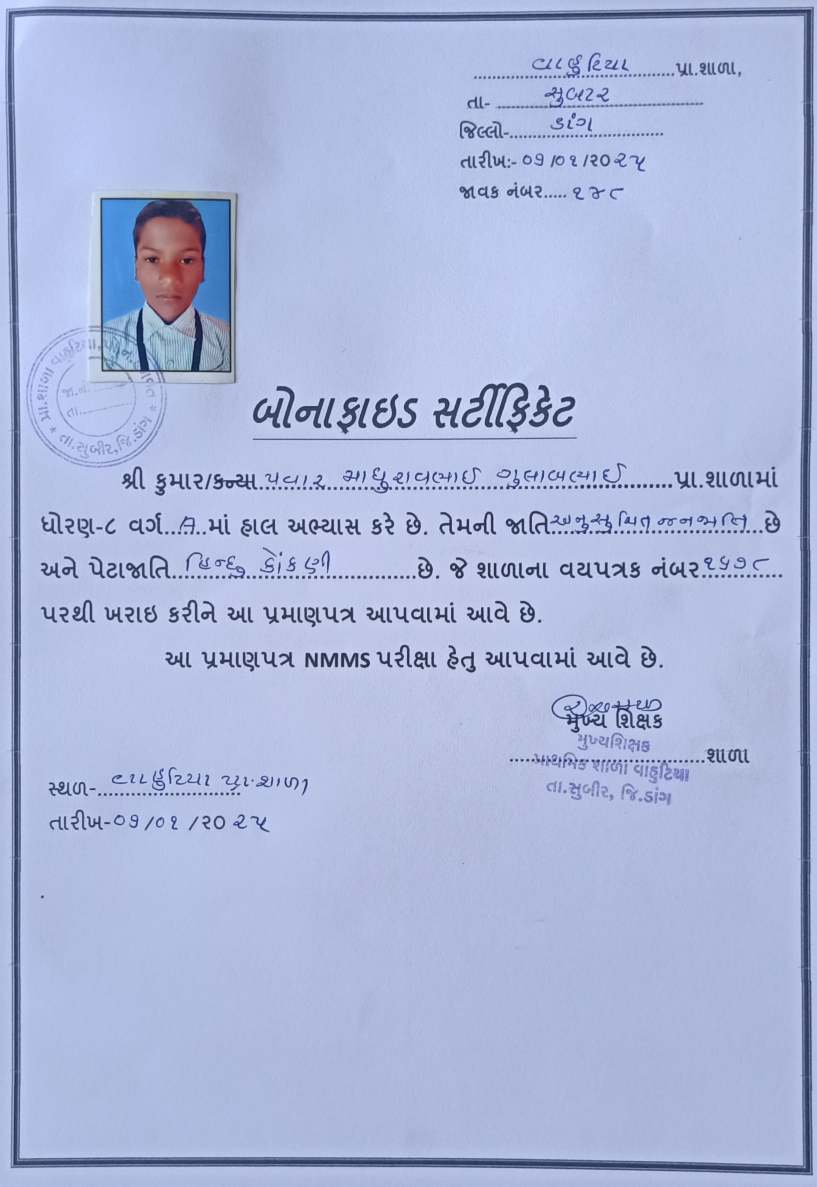 વાહુટિયા પ્રા.શાળા,
તા- સુબીર
જિલ્લો- ડાંગ
તારીખ:- ૦૭/૦૧/૨૦૨૫
જાવક નંબર..... ૧૪૮
પ્રા.શાળા વાહુટિયા,
જા.નં.
તા.
તા.સુબીર,જિ.ડાંગ
બોનાફાઇડ સર્ટીફિકેટ
શ્રી કુમાર/કન્યા પવાર માધુરાવભાઈ ગુલાબભાઈ પ્રા.શાળામાં
ધોરણ-૮ વર્ગ..A..માં હાલ અભ્યાસ કરે છે. તેમની જાતિ અનુસુચિત જનજાતિ છે
અને પેટાજાતિ હિન્દુ કોંકણી છે. જે શાળાના વયપત્રક નંબર ૧૫૭૮
પરથી ખરાઇ કરીને આ પ્રમાણપત્ર આપવામાં આવે છે.
આ પ્રમાણપત્ર NMMS પરીક્ષા હેતુ આપવામાં આવે છે.
મુખ્ય શિક્ષક
મુખ્યશિક્ષક
શાળા
પ્રાથમિક શાળા વાહુટિયા
તા.સુબીર, જિ.ડાંગ
સ્થળ- વાહુટિયા પ્રા.શાળા
તારીખ-૦૭/૦૧/૨૦૨૫